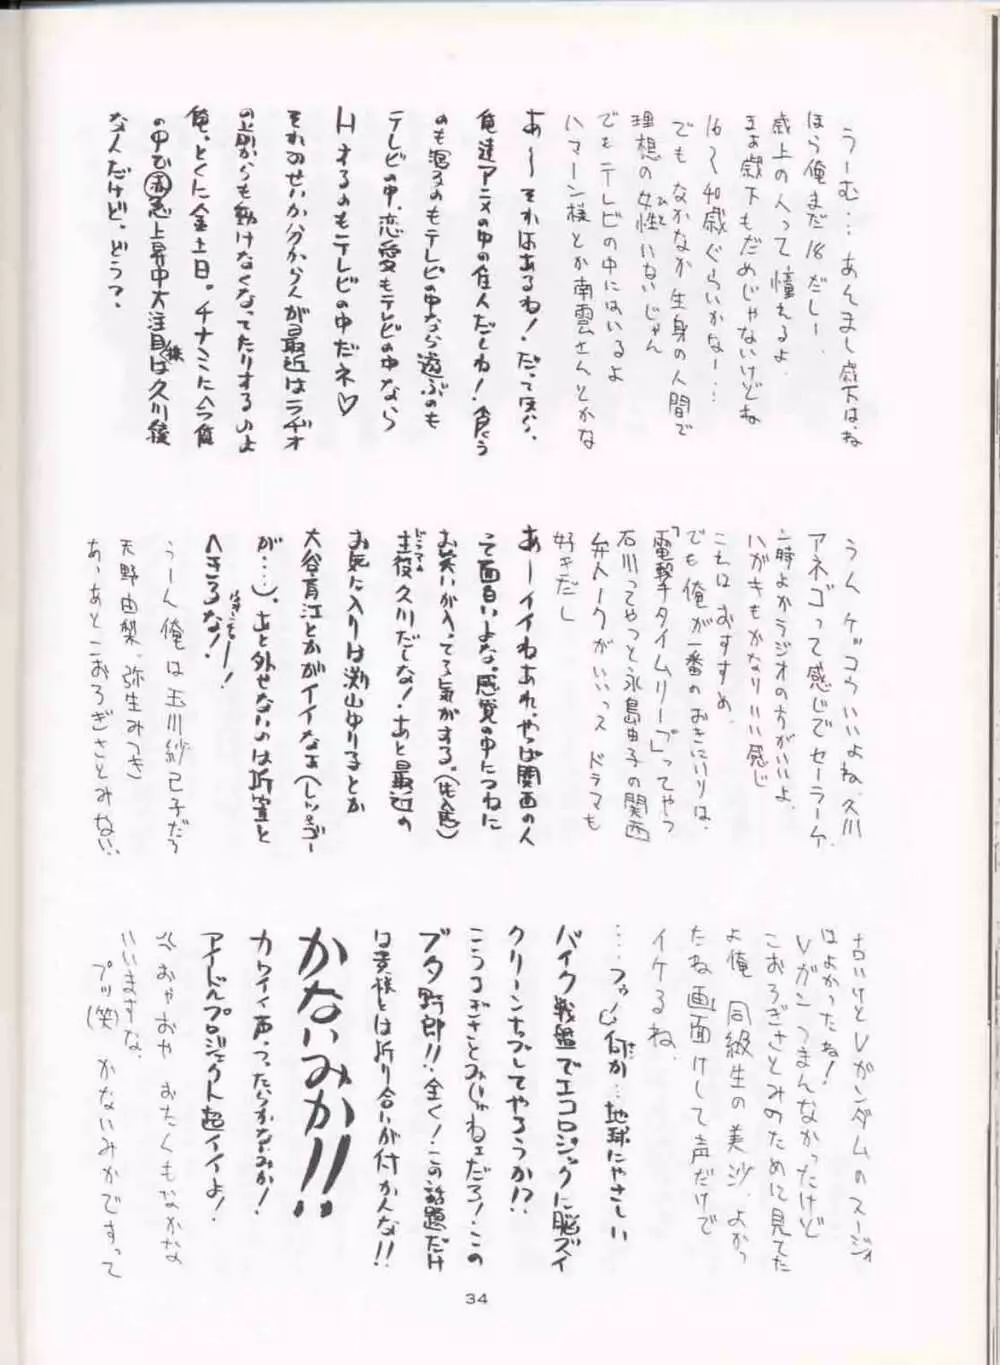 うーむ…あんまし歳下はね
ほら俺まだ18だしー、
歳上の人って憧れるよ
まぁ歳下もだめじゃないけどね
16～40歳ぐらいかなー…
でも なかなか生身の人間で
理想の女性いないじゃん
でもテレビの中にはいるよ
ハマーン様とか南雲さんとかな
あ～～それはあるね！だって ほら、
俺達アニメの中の住人だしね！食う
のも寝るのもテレビの中なら遊ぶのも
テレビの中、恋愛もテレビの中なら
HするのもテレビのOf中だネ♡
それのせいか分からんが最近はラヂオ
の前からも動けなくなってたりするのよ
俺。とくに金土日。チナミに今俺
の中で㊙急上昇中大注目株は久川綾
な人だけど、どうつ？
うん ケッコウいいよね、久川
アネゴって感じでセーラーの
時よかラジオの方がいいよ、
ハガキもかなりいい感じ
これはおすすめ、
でも俺が一番のおきにいりは、
「電撃タイムリープ」ってやつ
石川ってやつと永島由子の関西
弁トークがいいっス ドラマも
好きだし
あーイイねあれ。やっぱ関西の人
って面白いよな。感覚の中につねに
お笑いが入ってる気がする。
主役久川だしな！あと最近の
お気に入りは渕山ゆり子とか
大谷育江とかがイイなぁ
が…）。あと外せないのは折笠と
へきるな！
うーん 俺は玉川紗己子だろ
天野由梨。弥生みつき
あーあとこおろぎさとみない、
古いけどVガンダムのスージィ
はよかったね！
Vガン つまんなかったけど
こおろぎさとみのために見てた
よ俺 同級生の美沙、よかっ
たね画面けして声だけで
イケるね、
…つァ～ 何か…地球にやさしい
バイク戦盤でエコロジックに脳ズイ
クリーンナップしてやろうか!?
こうろぎさとみじゃねェだろ！この
ブタ野郎!!全く！この話題だけ
は貴様とは折り合いが付かんな!!
かないみか!!
カワイイ声、つったらかないみか！
アイドルプロジェクト超イイよ！
おやおや おたくもなかな
いいますな、
プッ(笑) かないみかですって
34